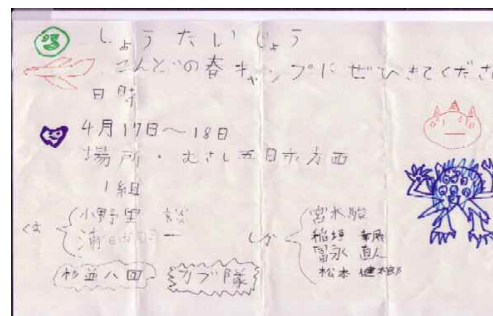 しょうたいじょう
こんどの春キャンプにぜひきてくださ
日時
4月17日～18日
場所・むさし五日市方面
1組
くま 小野里
しか 宮水
稲垣
富永 直人
松本 健太郎
杉並八団 カブ隊